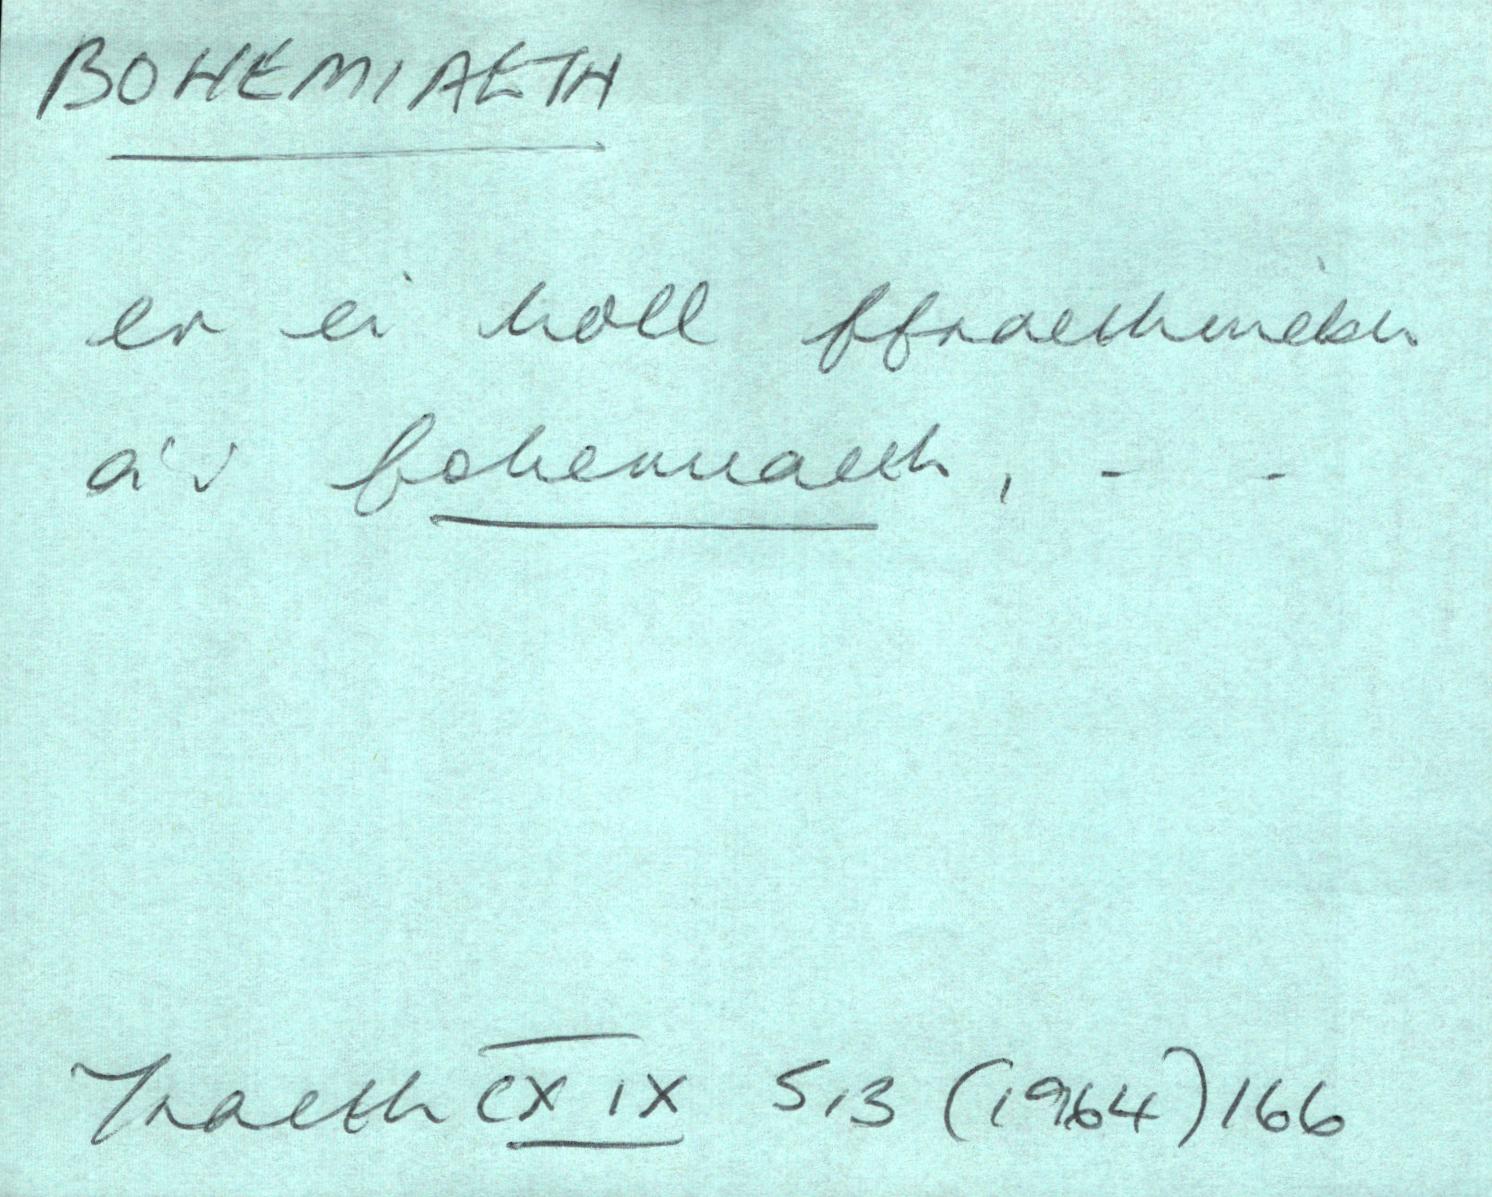 BOHEMIAETH
er ei holl ffraethineb
a'i bohemiaeth, - -
Traeth CXIX 513 (1964) 166